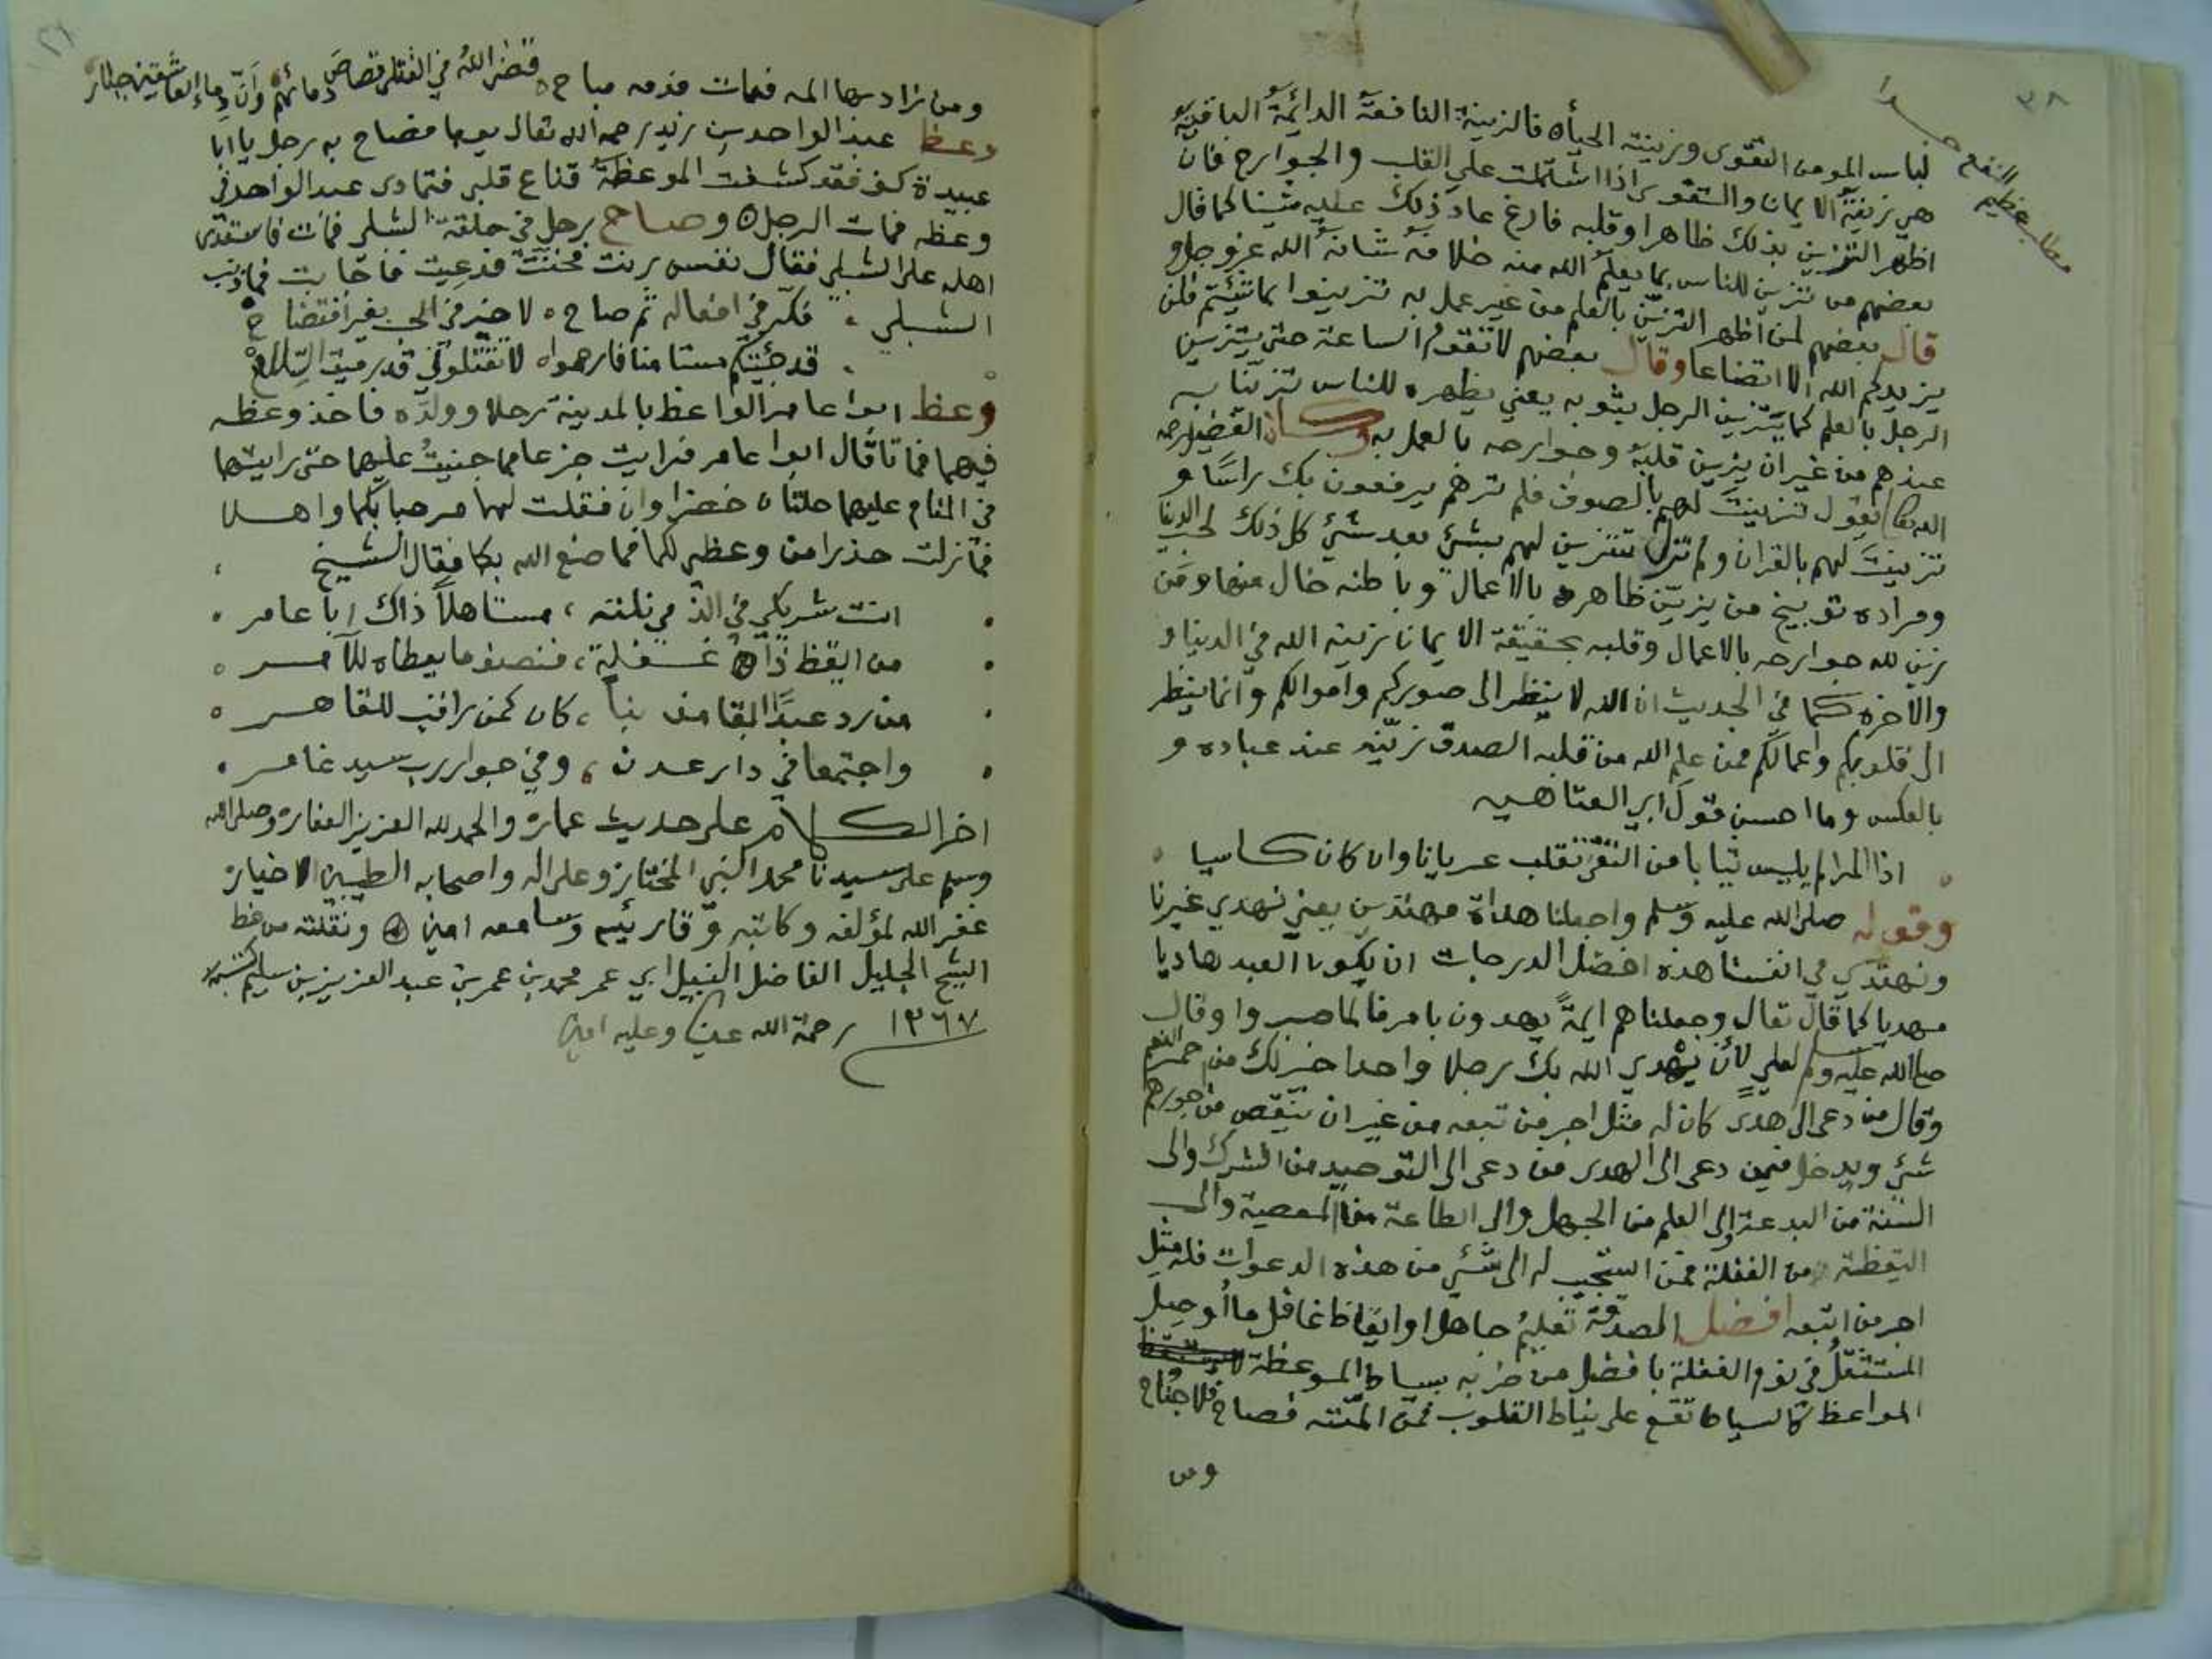 ٣٨
مطلب عظيم النفع جدا
لباس المومن التقوى وزينته الحيأه فالزينة النافعة الدائمة الباقية
هي زينة الايمان والتقوى اذا اشتملت على القلب والجوارح فان
اظهر التزين بذلك ظاهرا وقلبه فارغ عاد ذلك عليه شينا كما قال
بعضهم من تزين للناس بما يعلم الله منه خلافه شانه الله عز وجل و
قال بعضهم لمن اظهر التزين بالعلم من غير عمل به تزينوا بما شئتم فلن
يزيدكم الله الا اتضاعا وقال بعضهم لا تقوم الساعة حتى يتزين
الرجل بالعلم كما يتزين الرجل بثوبه يعني يظهره للناس تزينا به
عندهم من غير ان يزين قلبه وجوارحه بالعمل به وكان الفضيل رحمه
الله تعا يقول تزينت لهم بالصوف فلم ترهم يرفعون بك راسا و
تزينت لهم بالقران ولم تزل تتزين لهم بشئ بعد شئ كل ذلك لحب الدنيا
ومراده توبيخ من يزين ظاهره بالاعمال وباطنه خال منها ومن
زين لله جوارحه بالاعمال وقلبه بحقيقة الايمان زينه الله في الدنيا و
والاخره كما في الحديث ان الله لا ينظر الى صوركم واموالكم وانما ينظر
الى قلوبكم واعمالكم فمن علم الله من قلبه الصدق زينه عند عباده و
بالعكس وما احسن قول ابي العتاهيه
اذا المرا لم يلبس ثيابا من التقى تقلب عريانا وان كان كاسيا
وقوله صلى الله عليه وسلم واجعلنا هداة مهتدين يعني نهدي غيرنا
ونهتدي في انفسنا هذه افضل الدرجات ان يكون العبد هاديا
مهديا كما قال تعالى وجعلناهم ايمة يهدون بامرنا لما صبروا وقال
صلى الله عليه وسلم لعلي لأن يهدي الله بك رجلا واحدا خير لك من حمر النعم
وقال من دعى الى هدى كان له مثل اجر من تبعه من غير ان ينقص من اجورهم
شئ ويدخل فيمن دعى الى الهدى من دعى الى التوحيد من الشرك والى
السنة من البدعة والى العلم من الجهل والى الطاعة من المعصية والى
اليقظة من الغفلة فمن استجيب له الى شئ من هذه الدعوات فله مثل
اجر من اتبعه افضل الصدقة تعليم جاهل او ايقاظ غافل ما أوصل
المستثقل في نوم الغفلة بافضل من ضربه بسياط الموعظة ليستيقظ
المواعظ كالسياط تقع على نياط القلوب فمن المته فصاح فلا جناح
ومن
ومن زاد بها المه فمات فدمه مباح ه قضى الله في القتلى قصاص دمائهم وان دماء العاشقين جبار
وعظ عبد الواحد بن زيد رحمه الله تعالى يوما فصاح به رجل يا ابا
عبيدة كف فقد كشفت الموعظة قناع قلبي فتمادى عبد الواحد في
وعظه فمات الرجل ه وصاح رجل في حلقة الشبلي فمات فاستعدى
اهله على الشبلي فقال نفس رنت فحنت فدعيت فاجابت فما ذنب
الشبلي ، فكر في افعاله ثم صاح ه لا خير في الحب بغير افتضاح
، قد جئتكم مستامنا فارحموا ه لا تقتلوني قد رميت السلاح
وعظ ابوا عامر الواعظ بالمدينة رجلا وولده فاخذ وعظه
فيهما فماتا قال ابوا عامر فرايت جزعا مما جنيت عليهما حتى رايتهما
في المنام عليهما حلتان خضراوان فقلت لهما مرحبا بكما واهلا
فما زلت حذرا من وعظي لكما فما صنع الله بكما فقال الشيخ
انت شريكي في الذي نلته ، مستاهلا ذاك ابا عامر
من ايقظ ذا غفلة ، فنصف ما يعطاه للآمر
من رد عبدا ابقا مذنبا ، كان كمن راقب للقاهر
واجتمعا في دار عدن ، وفي جوار رب سيد غافر
اخر الكلام على حديث عمار ه والحمد لله العزيز الغفار ه وصلى الله
وسلم على سيدنا محمد النبي المختار ه وعلى اله واصحابه الطيبين الاخيار ه
غفر الله لمؤلفه وكاتبه وقارئيه وسامعه امين ه ونقلته من خط
الشيخ الجليل الفاضل النبيل ابي عمر محمد بن عمر بن عبد العزيز بن سليم كتبه
١٣٦٧ رحمة الله علينا وعليه امين